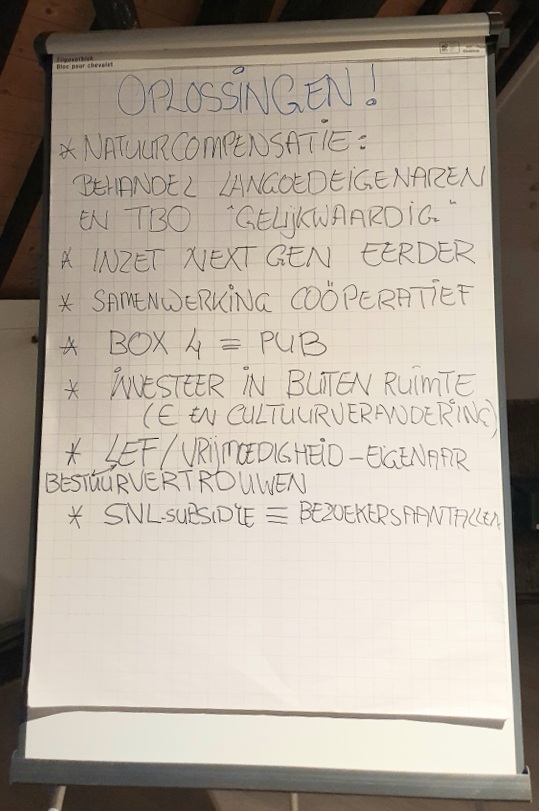 Bloc pour chevalet
OPLOSSINGEN!
* NATUURCOMPENSATIE:
BEHANDEL LANGOEDEIGENAREN
EN TBO "GELIJKWAARDIG"
* INZET NEXT GEN EERDER
* SAMENWERKING COÖPERATIEF
* BOX 4 = PUB
* INVESTEER IN BUITEN RUIMTE
(€ EN CULTUURVERANDERING)
* LEF/VRIJMOEDIGHEID-EIGENAAR
BESTUURVERTROUWEN
* SNL-SUBSIDIE ≡ BEZOEKERSAANTALLEN